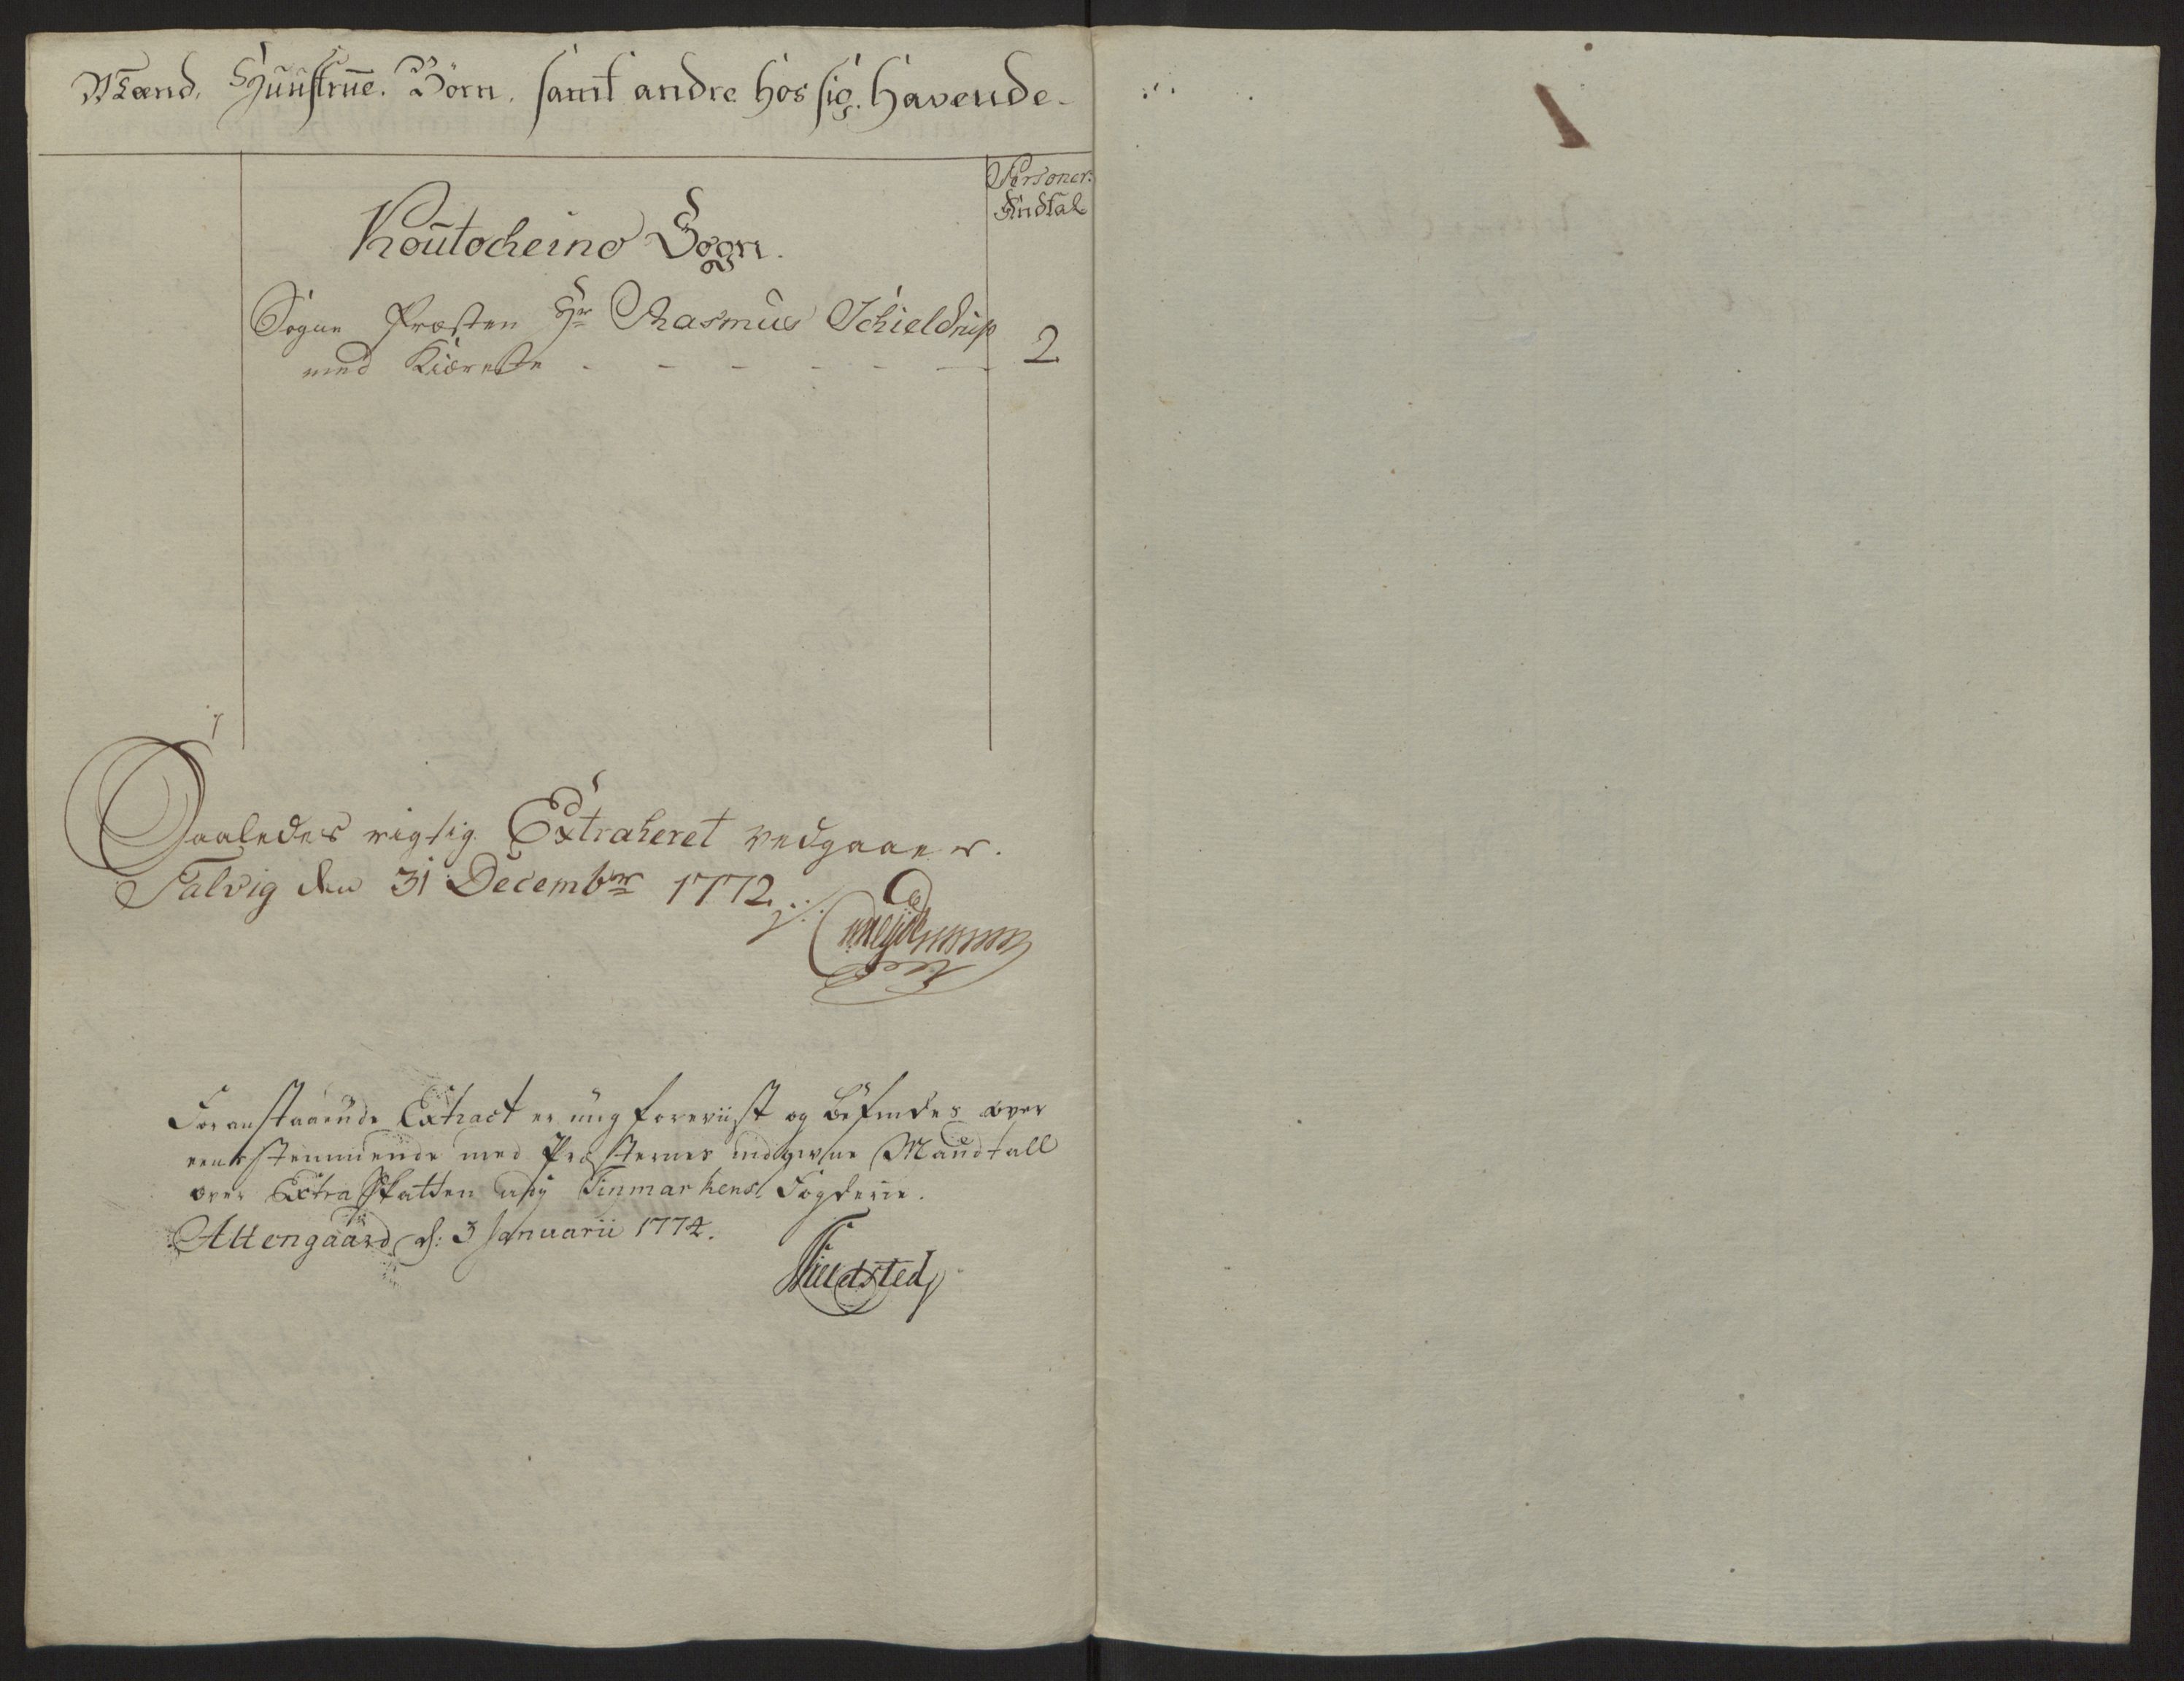 Mænd, Huustrue. Börn, samt andre hos sig. havende.
Personer:
Andtal
Koutocheino Sogn.
Sogne Præsten Hr Rasmus Schieldrup
med Kiæreste - - - - - - 2
Saaledes rigtig Extraheret vedgaaes.
Talvig den 31 Decembr 1772
Foranstaaende Extract er mig foreviist og befindes over
eensstemmende med Præsternes indgivne Mandtall
over Extra Skatten udj Finmarkens Fogderie.
Altengaard d: 3 Januarii 1774.